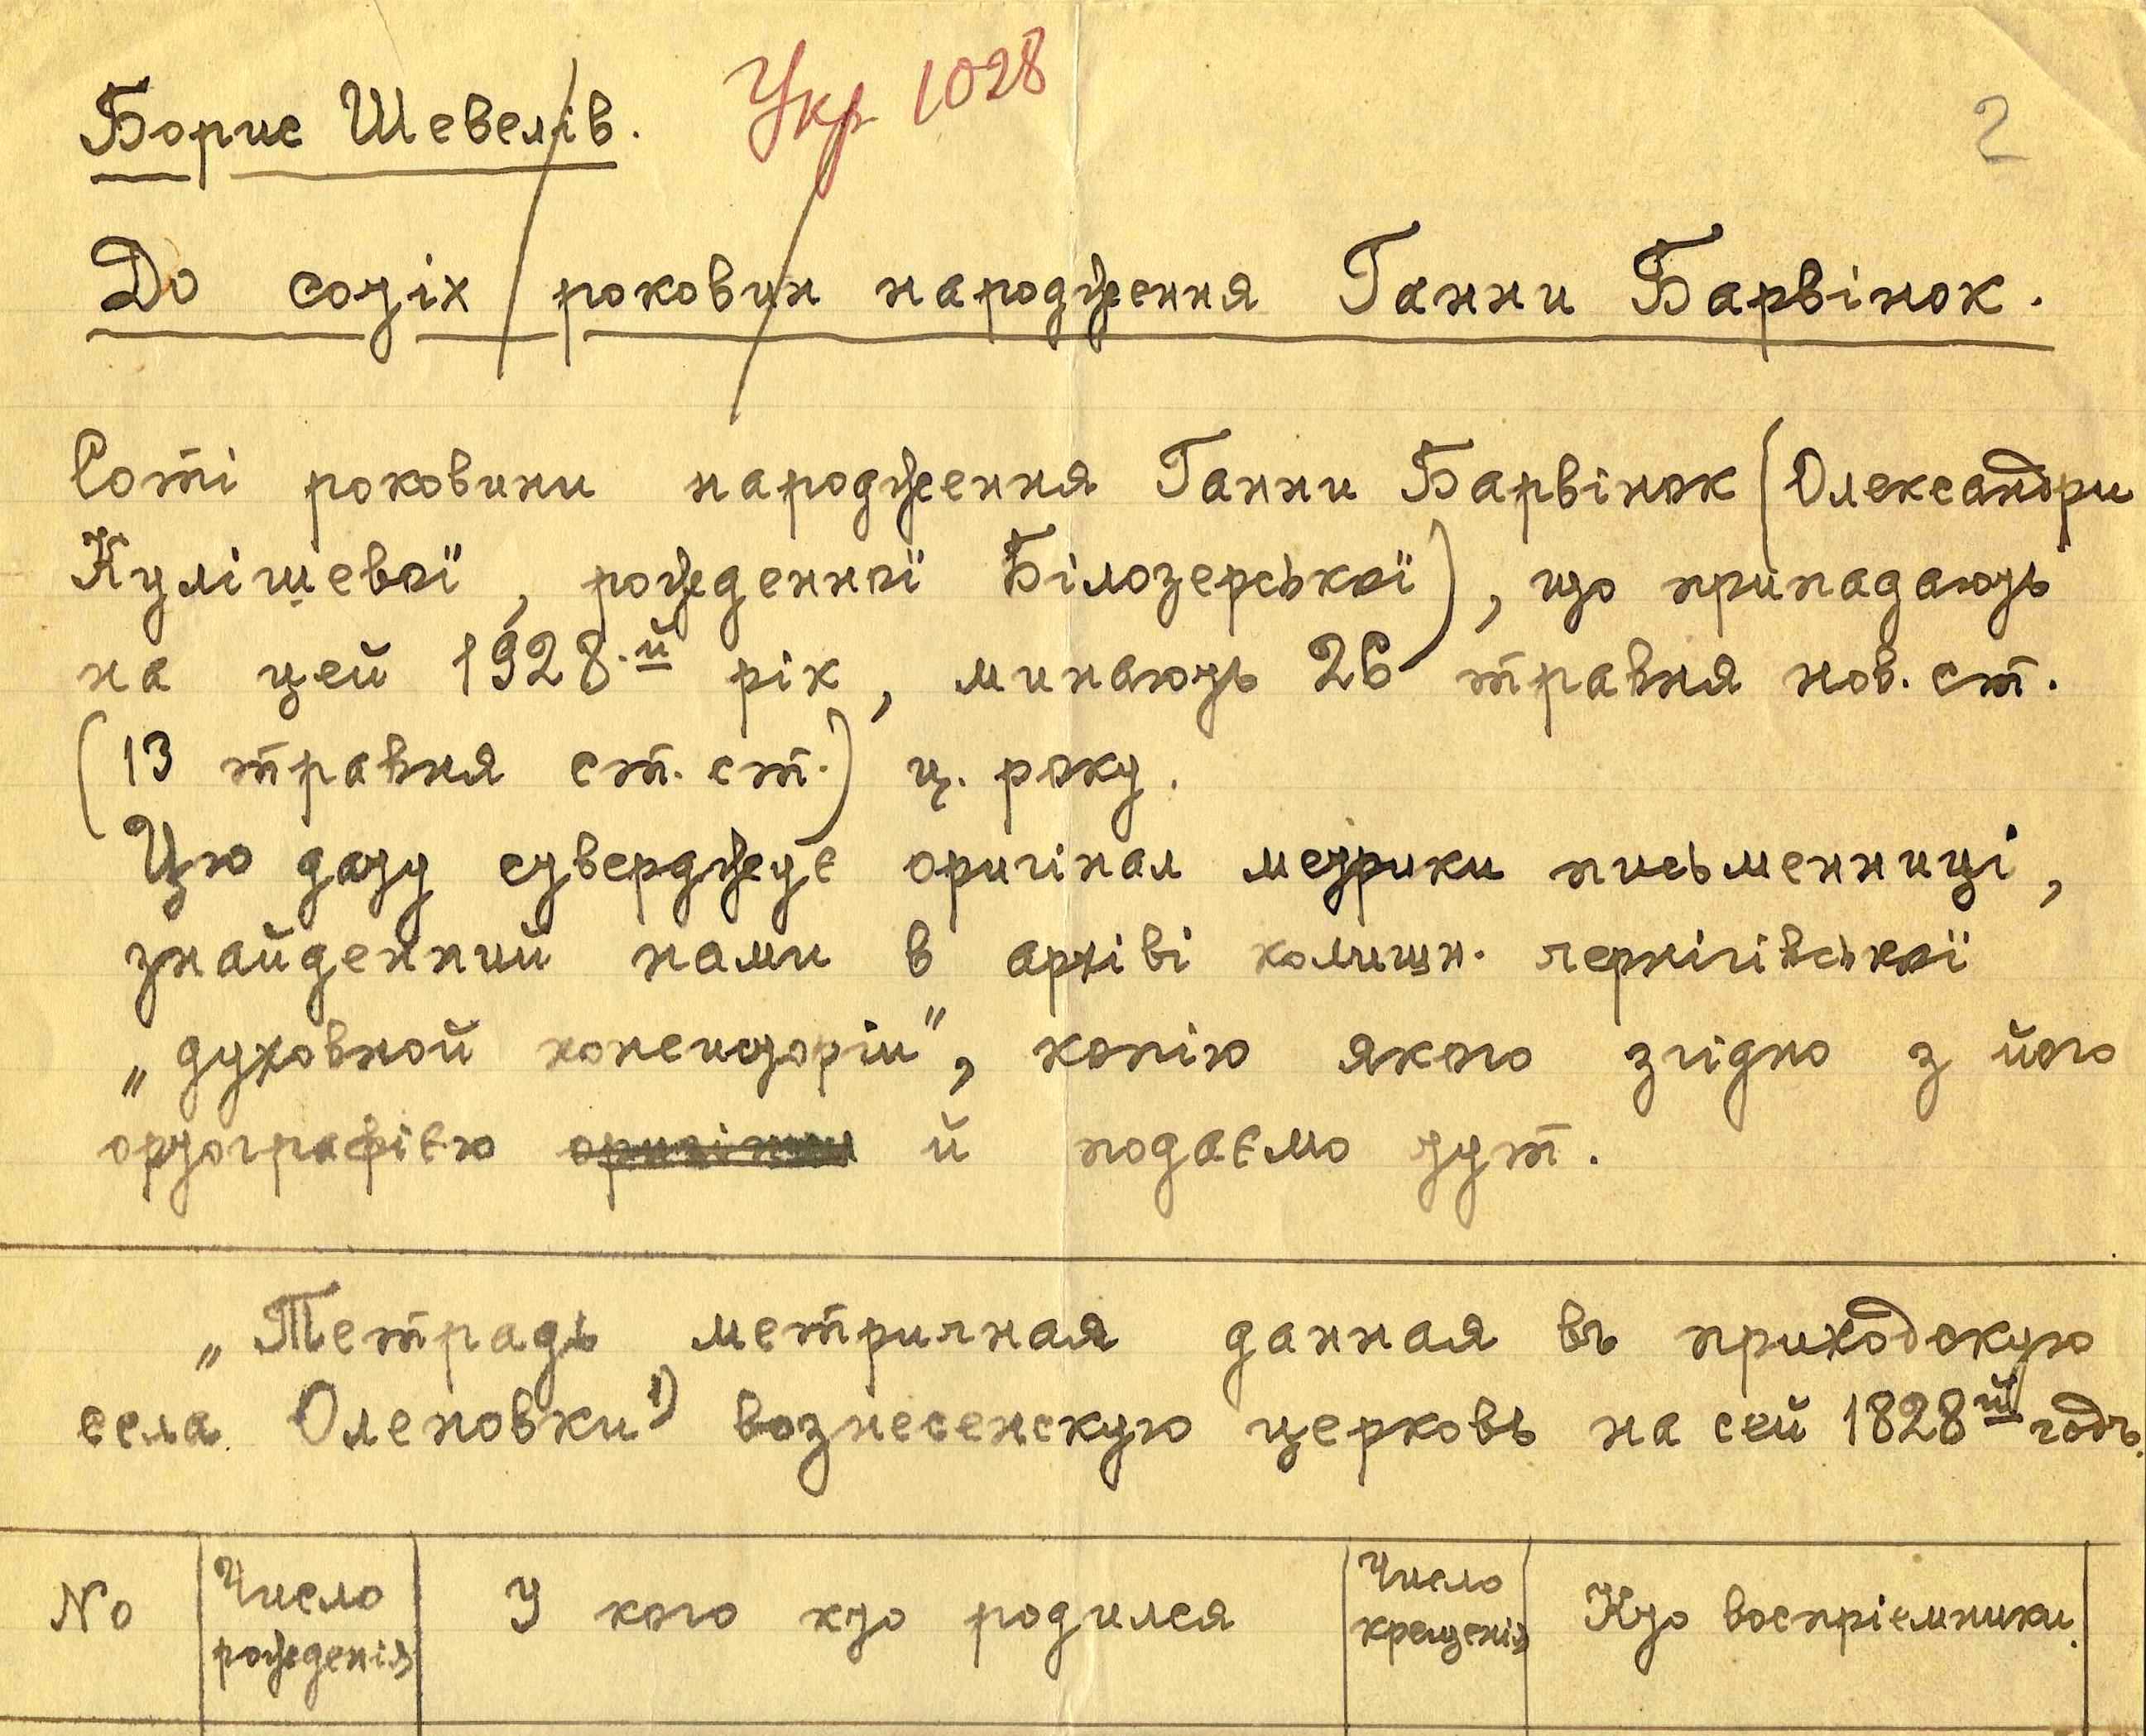 Укр 1028
Борис Шевелів.
2
До сотіх роковин народження Ганни Барвінок.
Соті роковини народження Ганни Барвінок (Олександри
Кулішевої, рожденної Білозерської), що припадають
на цей 1928.й рік, минають 26 травня нов. ст.
(13 травня ст. ст.) ц. року.
Цю дату стверджує оригінал метрики письменниці,
знайденний нами в архіві колишн. чернігівської
„духовной консисторіи", копію якого згідно з його
ортографією й подаємо тут.
„Тетрадь метричная данная въ приходскую
села Оленовки¹⁾ вознесенскую церковь на сей 1828й годъ.
No
Число
рожденія
У кого кто родился
Число
крещенія
Кто воспріемники.